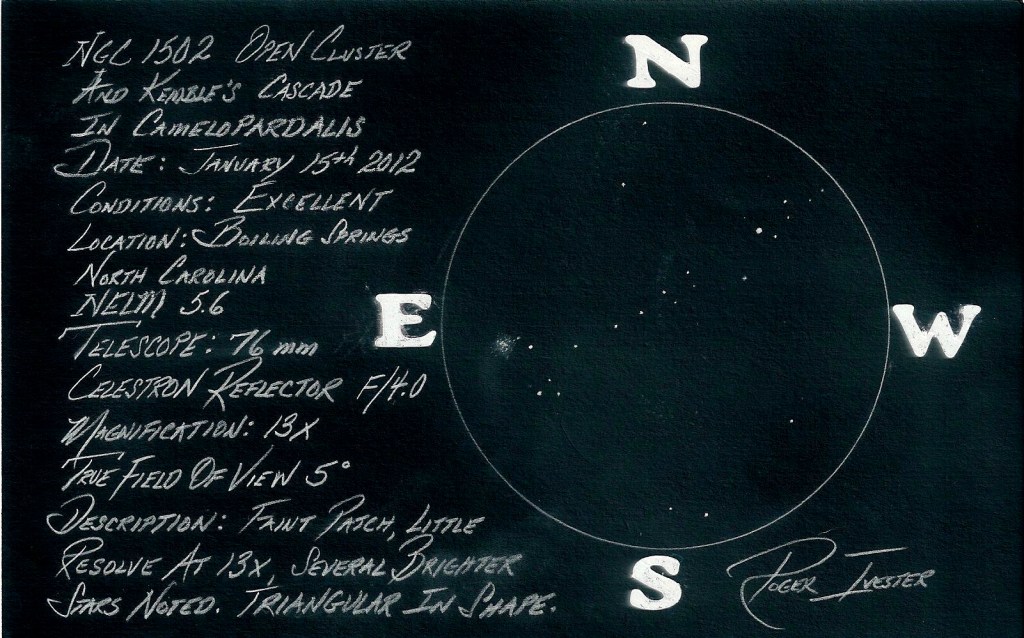 NGC 1502 OPEN CLUSTER
AND KEMBLE'S CASCADE
IN CAMELOPARDALIS
DATE: JANUARY 15th 2012
CONDITIONS: EXCELLENT
LOCATION: BOILING SPRINGS
NORTH CAROLINA
NELM 5.6
TELESCOPE: 76 mm
CELESTRON REFLECTOR F/4.0
MAGNIFICATION: 13X
TRUE FIELD OF VIEW 5°
DESCRIPTION: FAINT PATCH, LITTLE
RESOLVE AT 13X, SEVERAL BRIGHTER
STARS NOTED. TRIANGULAR IN SHAPE.
N
E
W
S
ROGER IVESTER